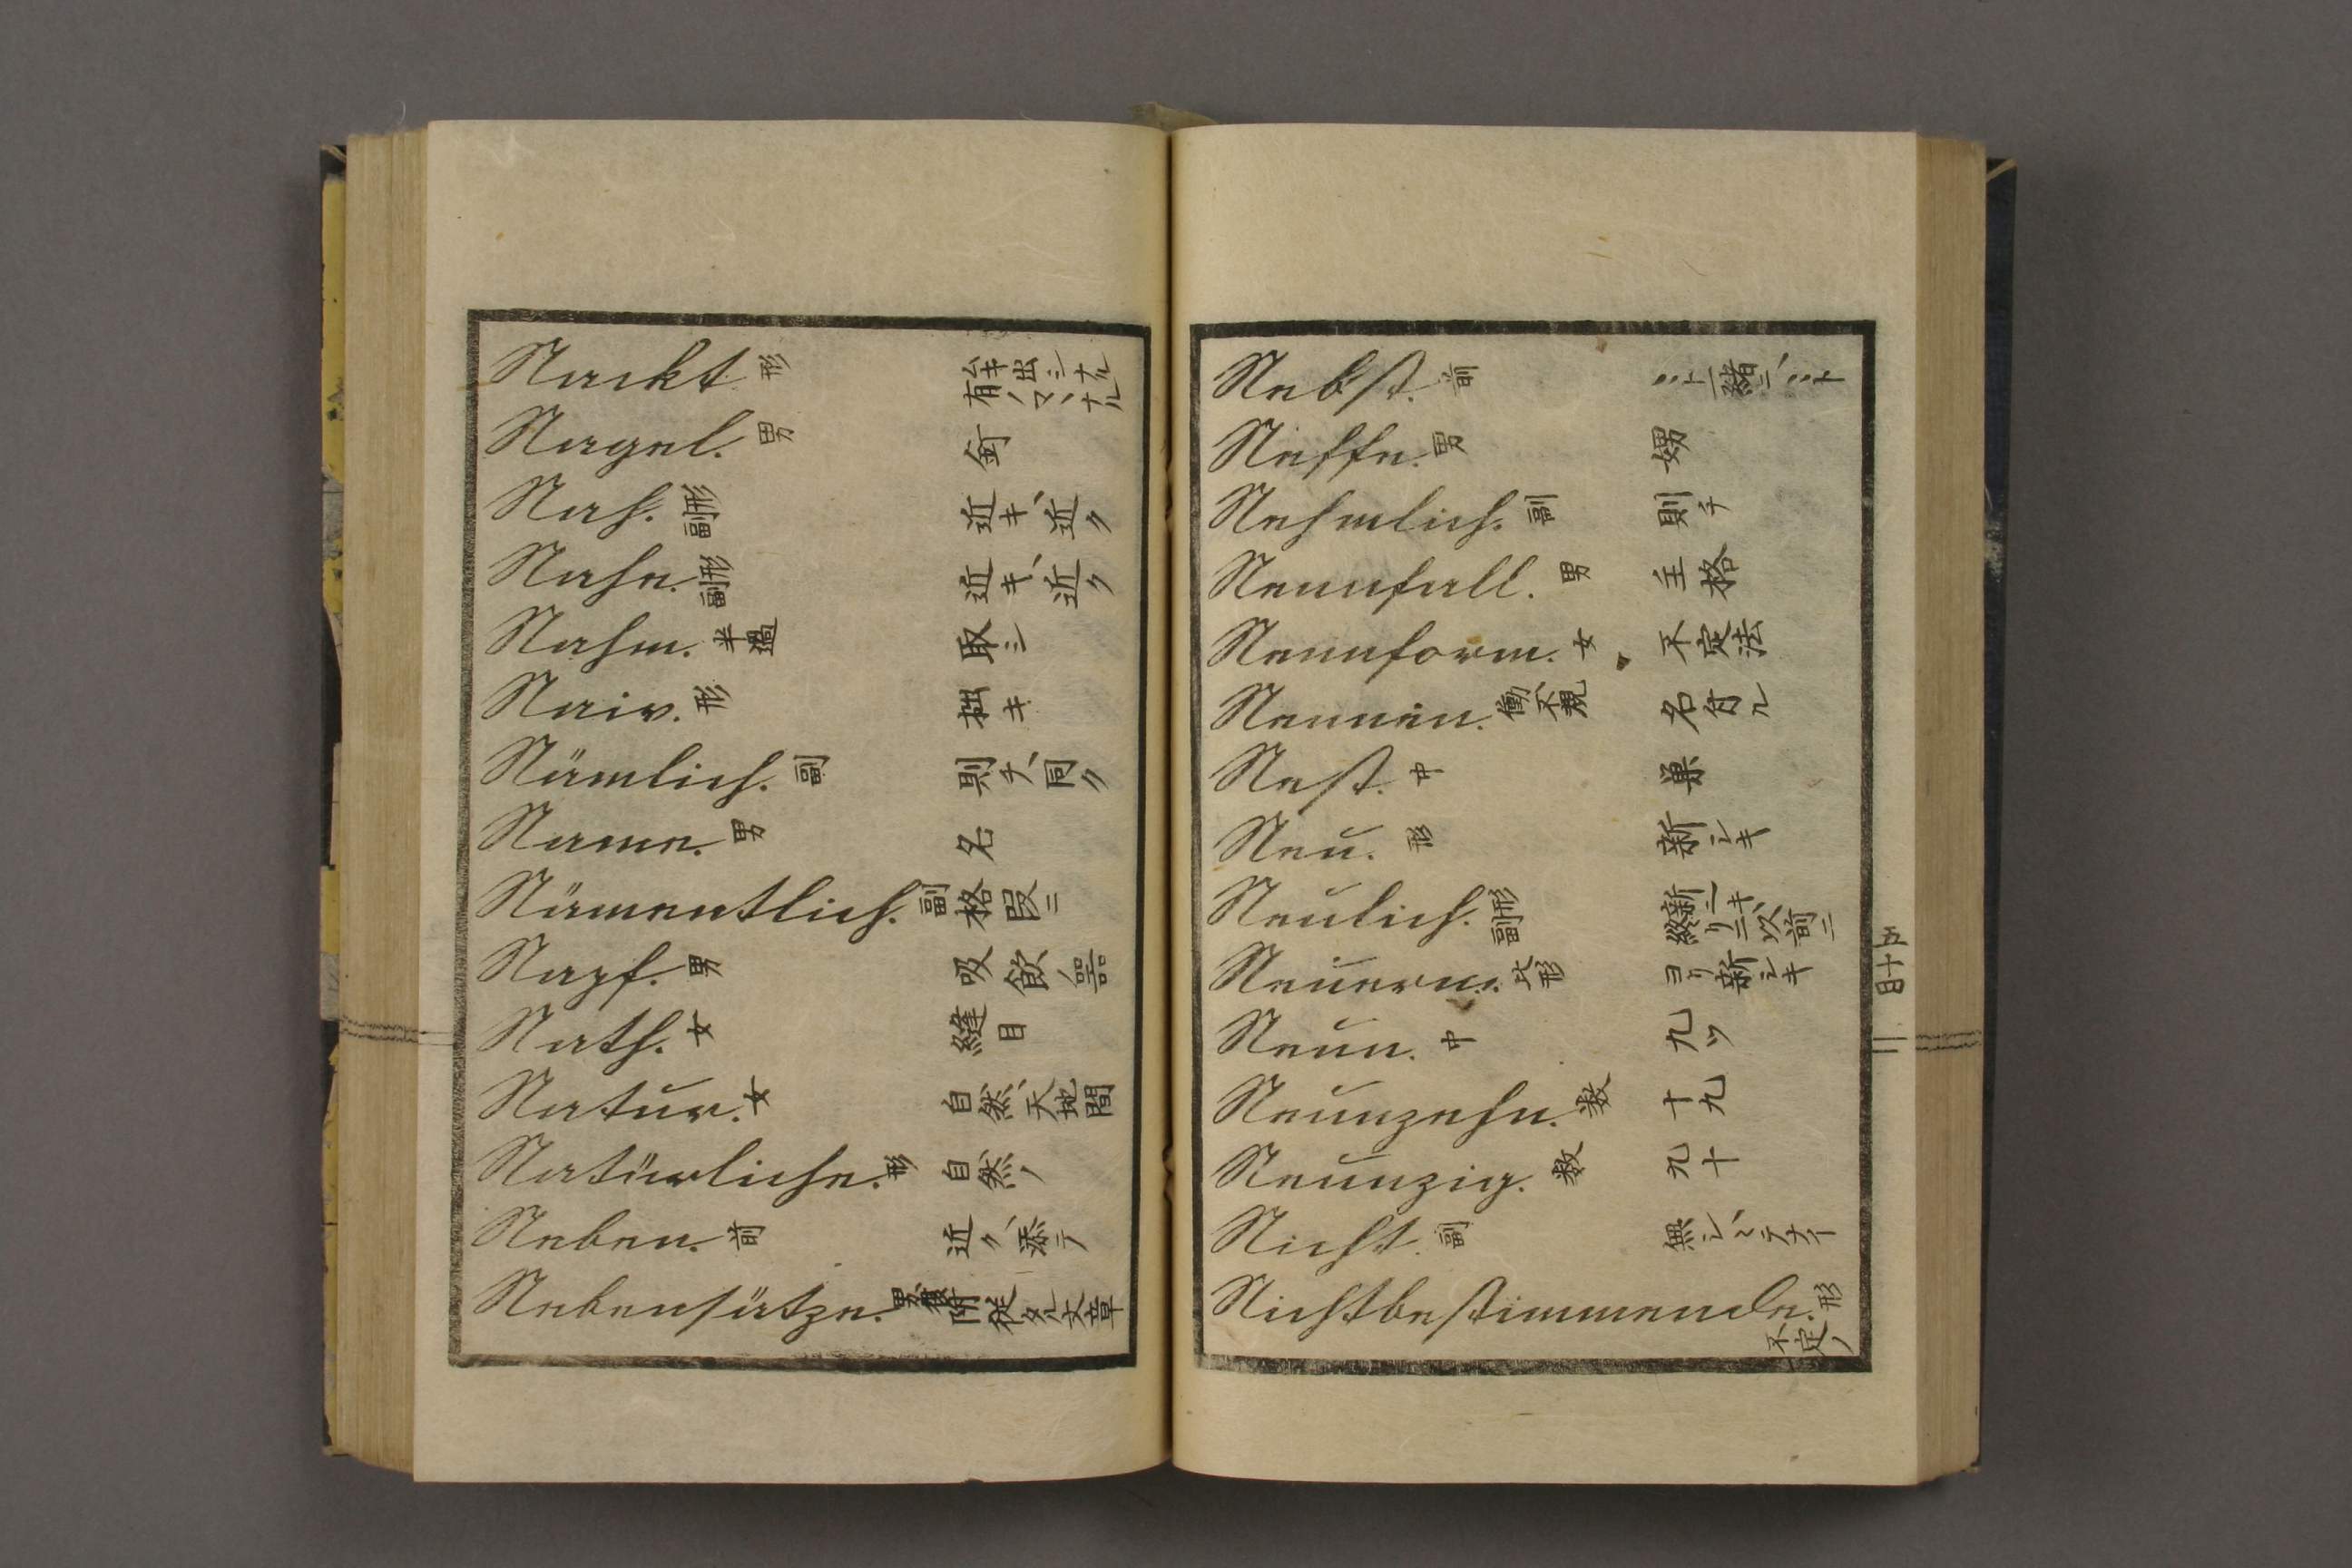 Nackt 形 ムキ出シナル 有ノマヽナル
Nagel. 男 釘
Nah. 形副 近キ、近ク
Nahe. 形副 近キ、近ク
Nahm. 半過 取シ
Naiv. 形 拙キ
Nämlich. 副 則チ、同ク
Name. 男 名
Nämentlich. 副 格段ニ
Napf. 男 吸飲器
Nath. 女 縫目
Natur. 女 自然、天地間
Natürliche. 形 自然ノ
Neben. 前 近ク、添テ
Nebensätze. 男複 附従タル文章
Nebst. 前 一緒ニ
Neffe. 男 甥
Nehmlich. 副 則チ
Nennfall. 男 主格
Nennform. 女 不定法
Nennen. 働不規 名付ル
Nest. 中 巣
Neu. 形 新シキ
Neulich. 形副 新シキ、以前ニ
Neuern. 比形 ヨリ新シキ
Neun. 中 九ツ
Neunzehn. 数 十九
Neunzig. 数 九十
Nicht. 副 無シ
Nichtbestimmende. 形
不定ノ
五十